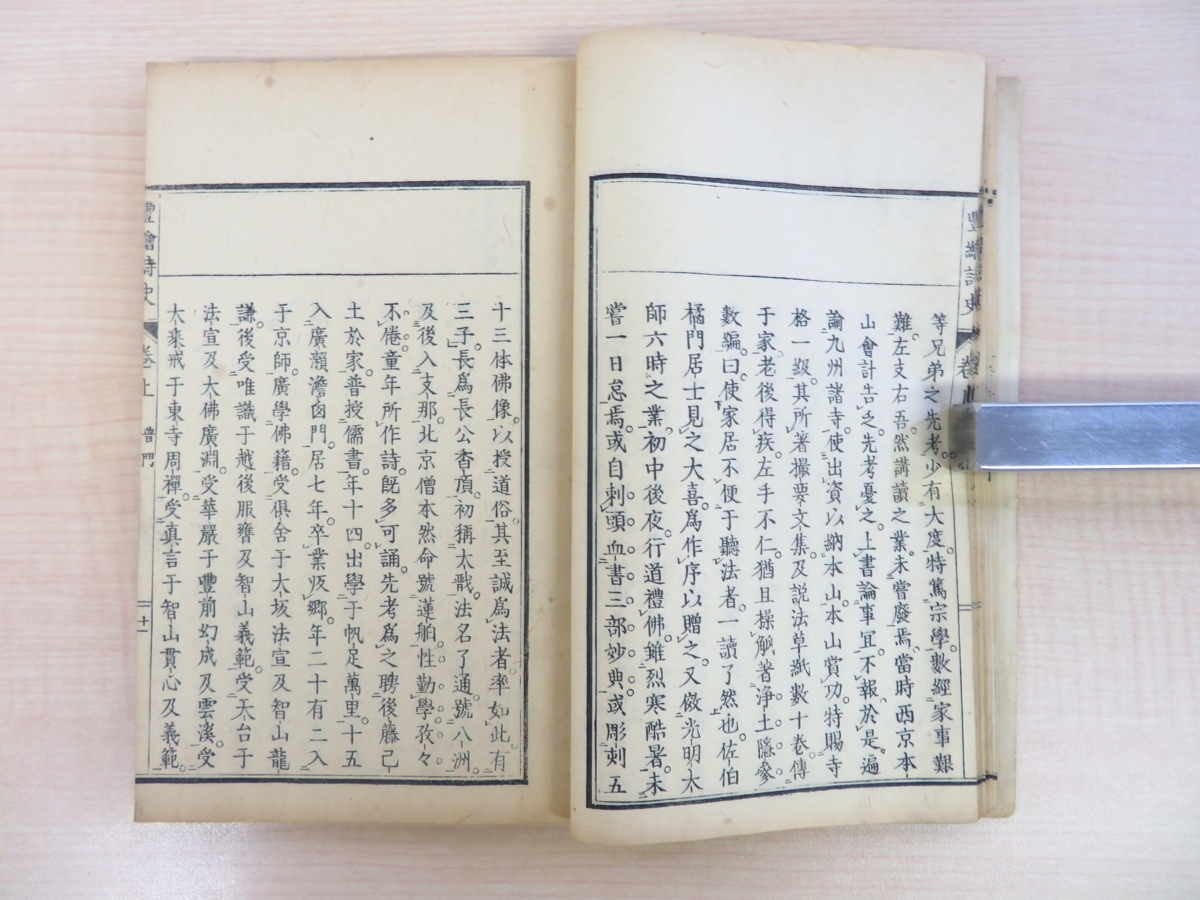 等兄弟之先考。少有大度。特篤宗學。數經家事艱
難。左支右吾。然講讀之業。未嘗廢焉。當時西京本
山會計告乏。先考憂之。上書論事宜。不報。於是遍
論九州諸寺。使出資以納本山。本山賞功。特賜寺
格一級。其所著撮要文集。及説法草紙數十卷。傳
于家。老後得疾。左手不仁。猶且操觚著淨土隱參
數編。曰。使家居不便于聽法者。一讀了然也。佐伯
橘門居士見之大喜。爲作序以贈之。又倣光明大
師六時之業。初中後夜。行道禮佛。雖烈寒酷暑。未
嘗一日怠焉。或自刺頭血書三部妙典。或彫刻五
豐繪詩史
卷上
十三体佛像。以授道俗。其至誠爲法者率如此。有
三子。長爲長公杳頂。初稱太戩。法名了通。號八洲。
及後入支那。北京僧本然命號蓮舶。性勤學。孜々
不倦。童年所作詩既多可誦。先考爲之聘後藤己
土於家。普授儒書。年十四出學于帆足萬里。十五
入廣瀬澹窗門。居七年。卒業皈鄉。年二十有二入
于京師。廣學佛籍。受俱舍于大坂法宣及智山龍
謙。後受唯識于越後服膺及智山義範。受天台于
法宣及大佛廣淵。受華嚴于豐前幻成及雲溪。受
大乘戒于東寺周禪。受眞言于智山貫心及義範。
豐繪詩史
卷上
僧門
二十一